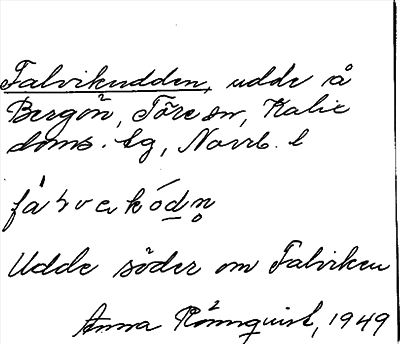 Falvikudden, udde å
Bergön, Töre sn, Kalix
doms. tg, Norrb. l
Udde söder om Falviken
Anna Rönnquist, 1949